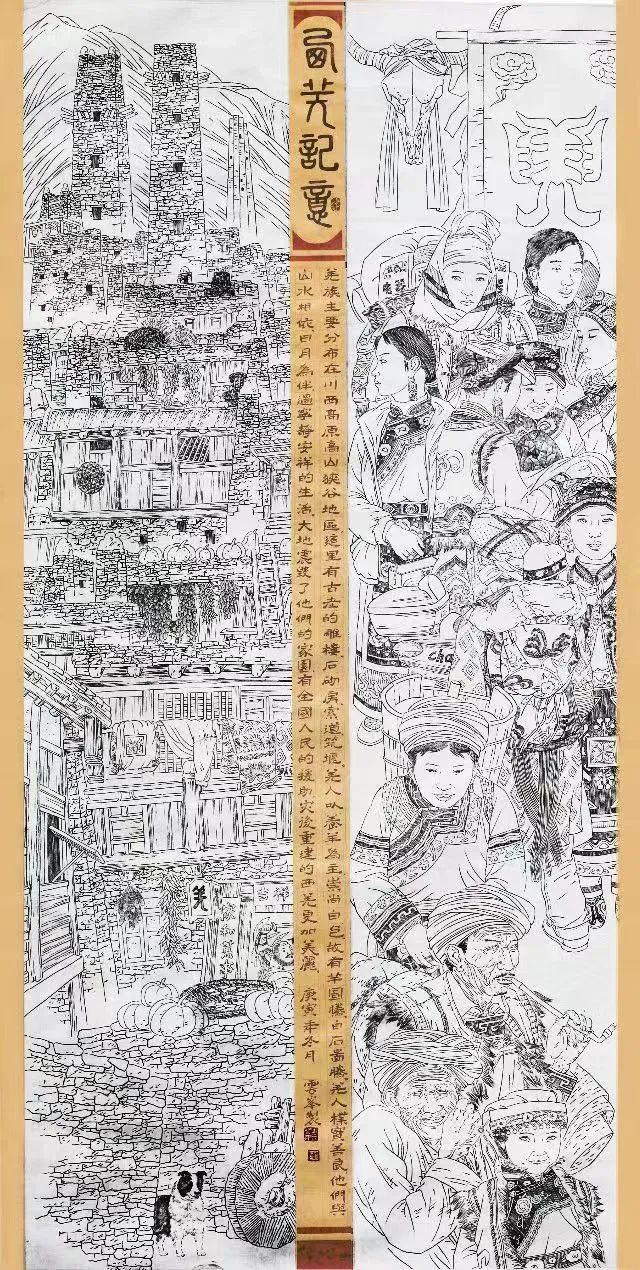 西羌記意
羌族主要分布在川西高原高山峽谷地區這里有古老的雕樓石砌房索道筑堰羌人以養羊為主崇尚白色故有羊圖騰白石圖騰羌人樸實善良他們與
山水相依日月為伴過寧靜安祥的生活大地震毀了他們的家園有全國人民的援助災後重建的西羌更加美麗 庚寅年冬月 雲峯製
羌
cha